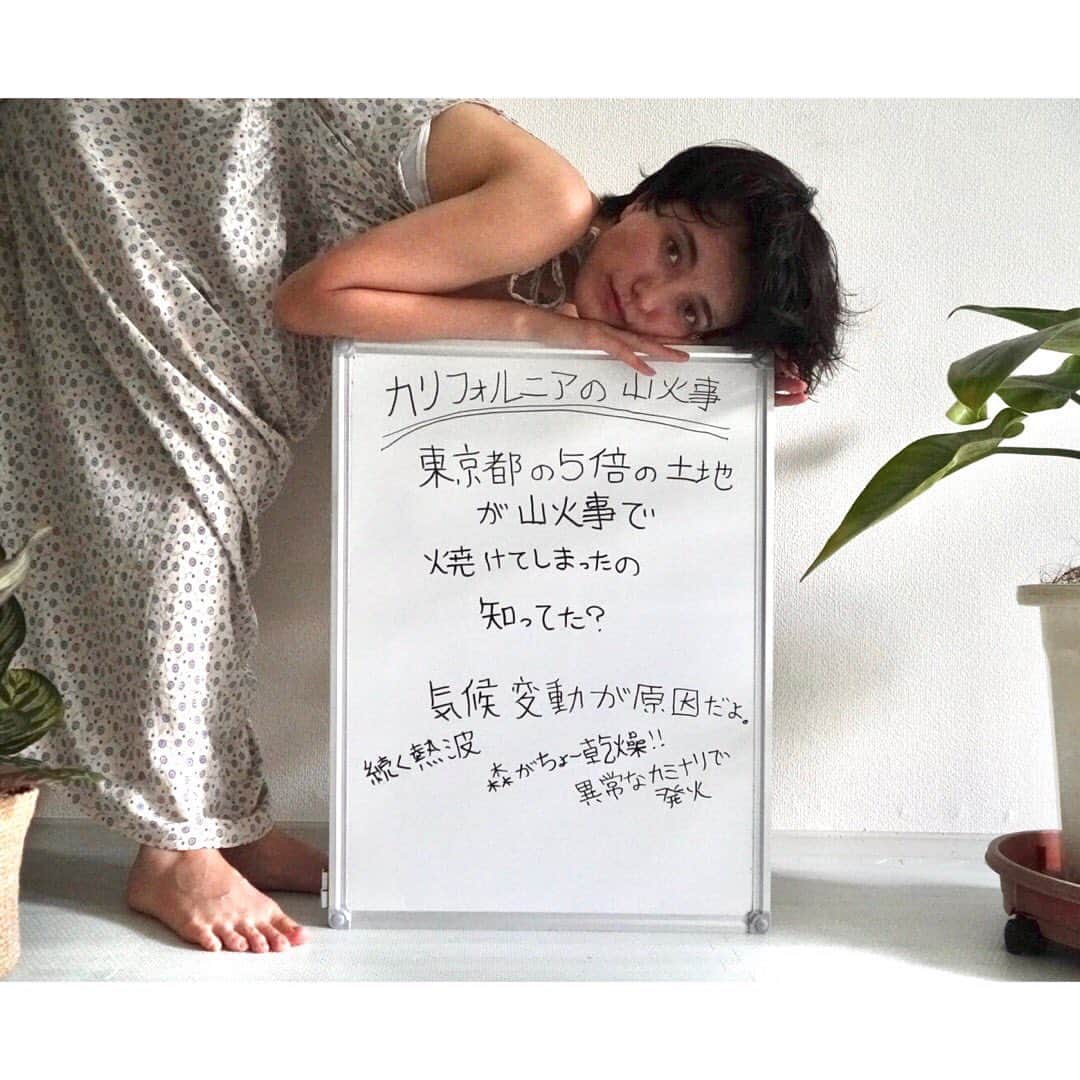 カリフォルニアの山火事
東京都の5倍の土地
が山火事で
焼けてしまったの
知ってた?
気候変動が原因だよ。
続く熱波
森がちょ〜乾燥!!
異常なカミナリで
発火